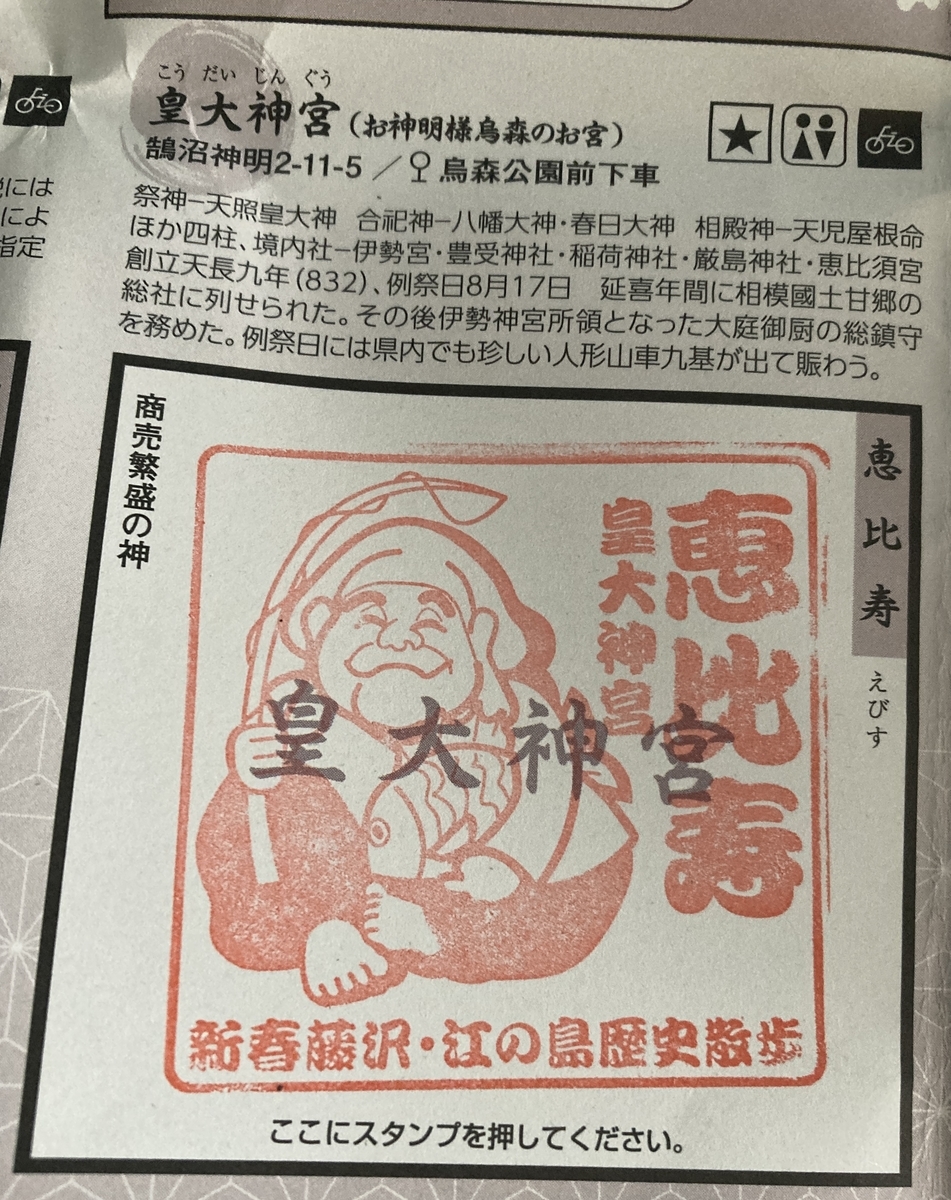 こう だい じん ぐう
皇大神宮(お神明様烏森のお宮)
鵠沼神明2-11-5/烏森公園前下車
祭神−天照皇大神 合祀神−八幡大神・春日大神 相殿神−天児屋根命
ほか四柱、境内社−伊勢宮・豊受神社・稲荷神社・厳島神社・恵比須宮
創立天長九年(832)、例祭日8月17日 延喜年間に相模國土甘郷の
総社に列せられた。その後伊勢神宮所領となった大庭御厨の総鎮守
を務めた。例祭日には県内でも珍しい人形山車九基が出て賑わう。
には
によ
指定
恵比寿
えびす
商売繁盛の神
恵比寿
皇大神宮
皇大神宮
新春藤沢・江の島歴史散歩
ここにスタンプを押してください。